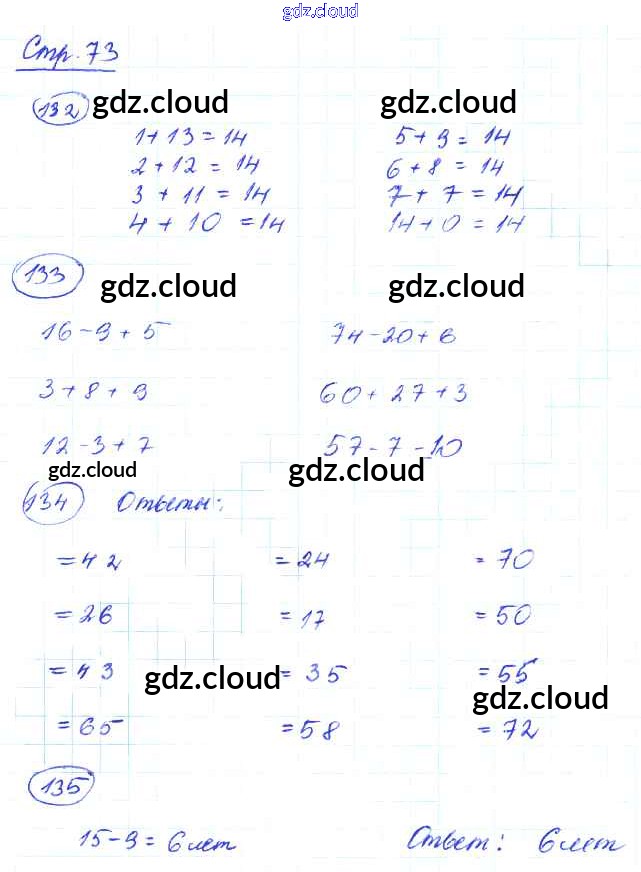 gdz.cloud
Стр. 73
132 gdz.cloud gdz.cloud
1+13=14 5+9=14
2+12=14 6+8=14
3+11=14 7+7=14
4+10=14 14+0=14
133 gdz.cloud gdz.cloud
16-9+5 74-20+6
3+8+9 60+27+3
12-3+7 57-7-10
gdz.cloud gdz.cloud
134 Ответы:
=42 =24 =70
=26 =17 =50
=43 gdz.cloud =35 =55
gdz.cloud
=65 =58 =72
135
15-9=6 лет Ответ: 6 лет